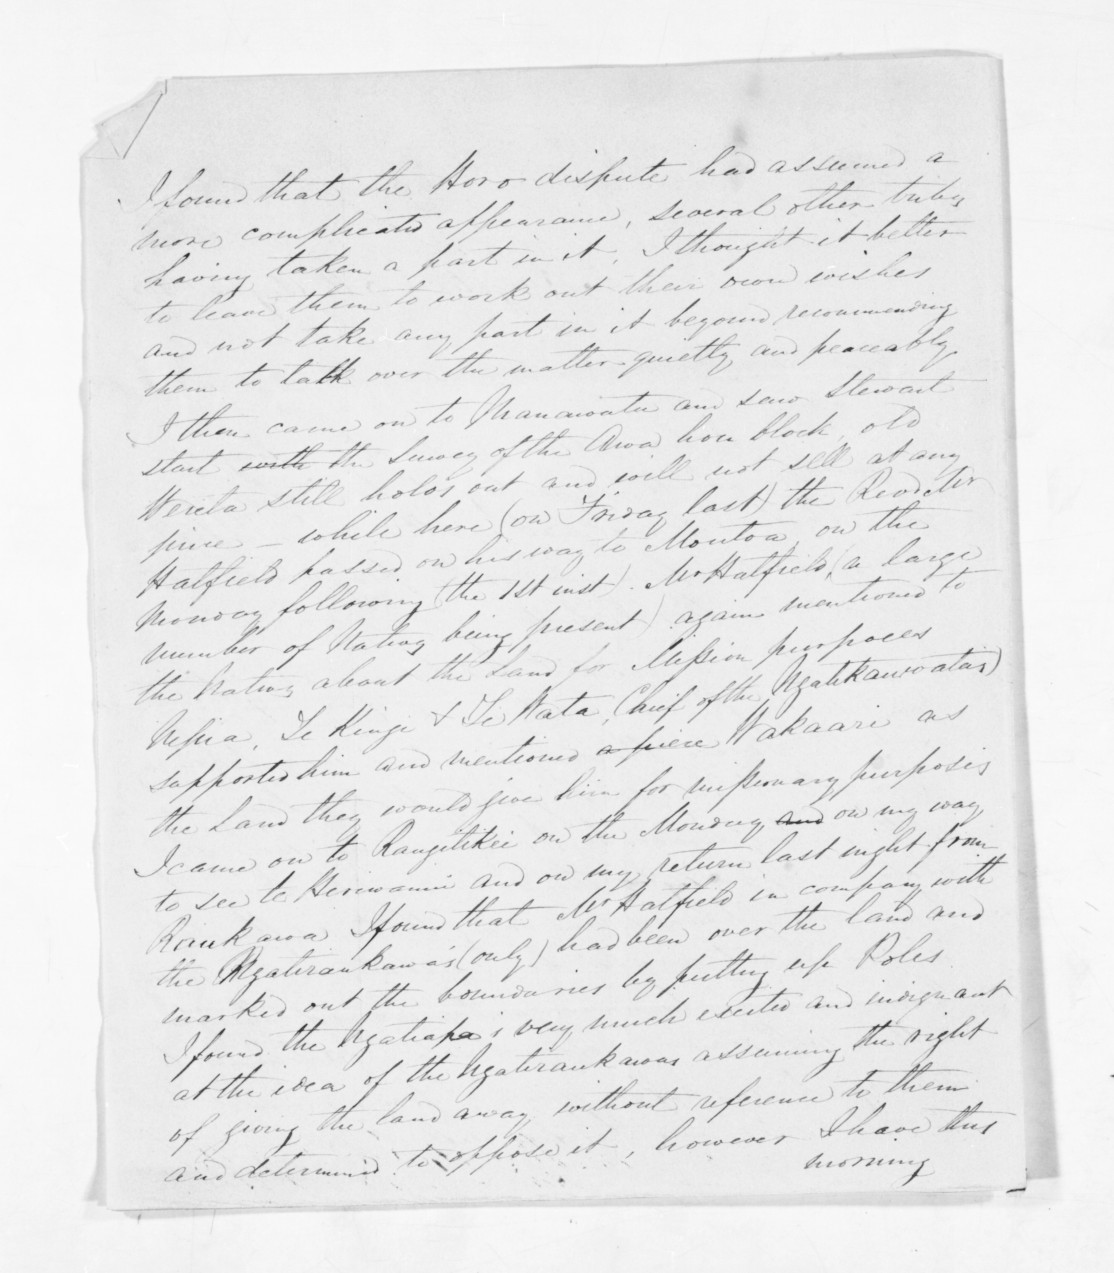 I found that the Horo dispute had assumed a
more complicated appearance, several other tribes
having taken a part in it, I thought it better
to leave them to work out their own wishes
and not take any part in it beyond recommending
them to talk over the matter quietly and peaceably
I then came on to Manawatu and saw Stewart
start with the Survey of the Awa hou block, old
Wereta still holds out and will not sell at any
price – while here (on Friday last) the Revd Mr
Hatfield passed on his way to Moutoa, on the
Monday following (the 1st inst). Mr Hatfield, (a large
number of Natives being present) again mentioned to
the Natives about the Land for Mission purposes
Nepia, Te Kingi & Te Wata, (Chief of the Ngatikauwatas)
supported him and mentioned a piece Wakaari as
the Land they would give him for missionary purposes
I came on to Rangitikei on the Monday and on my way
to see Te Heriwanui and on my return last night from
I found that Mr Hatfield in company with
the Ngatiraukawas (only) had been over the land and
marked out the boundaries by putting up Poles
I found the Ngatiapa's very much excited and indignant
at the idea of the Ngatiraukawas assuming the right
of giving the land away without reference to them
and determined to oppose it, however I have this
morning